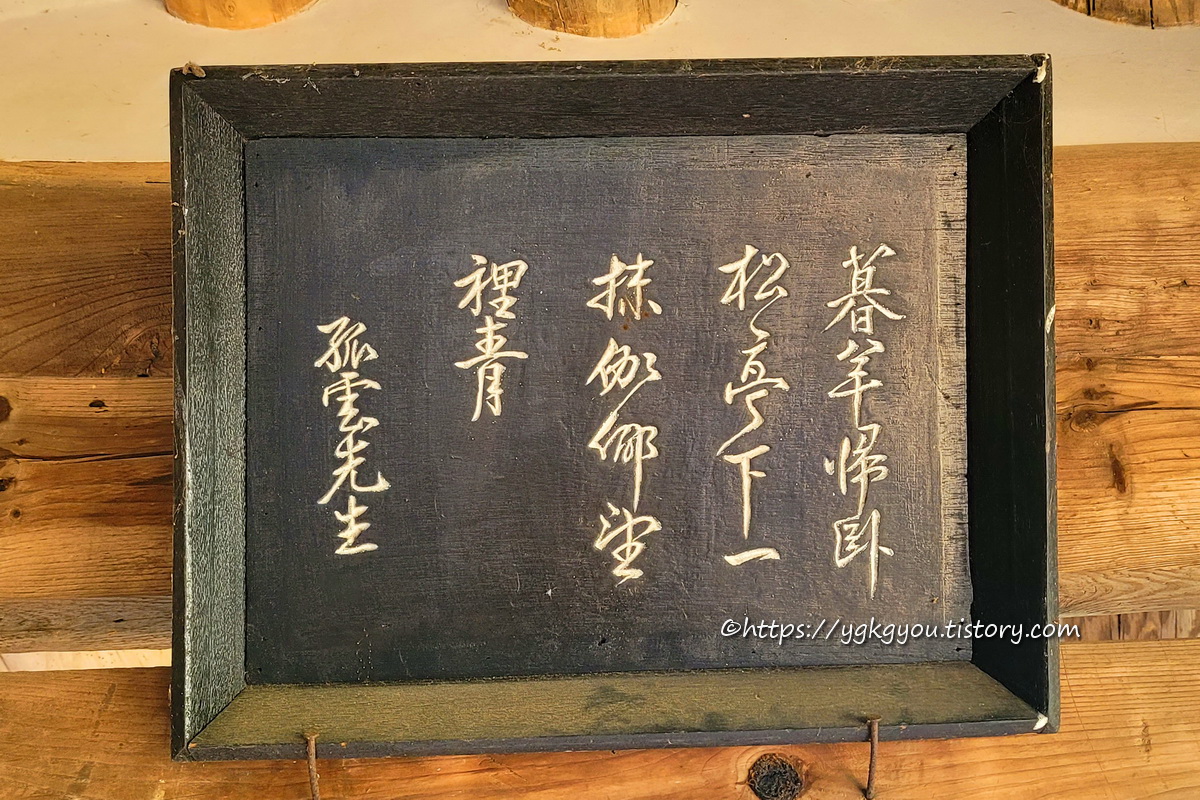 暮年帰臥
松亭下一
抹伽倻望
裡青
孤雲先生
©https://ygkgyou.tistory.com